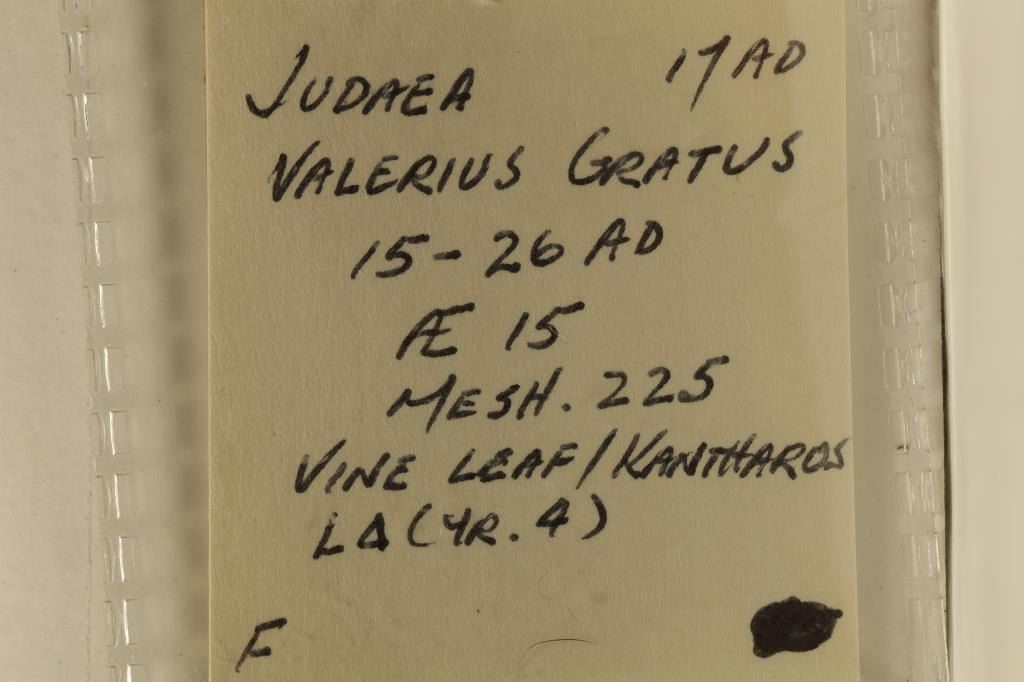 JUDAEA 17 AD
VALERIUS GRATUS
15-26 AD
Æ 15
MESH. 225
VINE LEAF/KANTHAROS
LΔ (YR. 4)
F